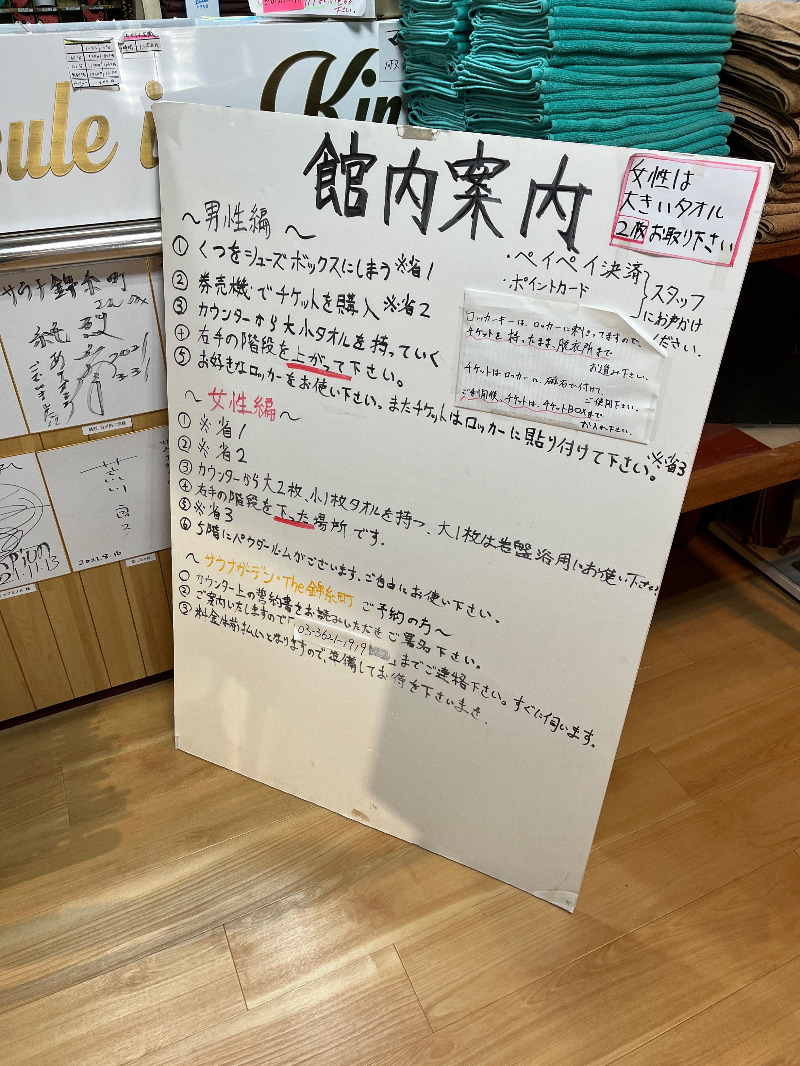 sule in Kin
館内案内
女性は
大きいタオル
2枚お取り下さい
・ペイペイ決済
・ポイントカード
スタッフ
にお声がけ
ください。
〜男性編〜
① くつをシューズボックスにしまう ※省1
② 券売機でチケットを購入 ※省2
③ カウンターから大小タオルを持っていく
④ 右手の階段を上がって下さい。
⑤ お好きなロッカーをお使い下さい。またチケットはロッカーに貼り付けて下さい。※省3
ロッカーキーは、ロッカーに刺さってますので、
チケットを持ったまま、脱衣所まで
お進み下さい。
チケットはロッカーに、磁石で付けて、
ご使用下さい。
ご利用後、チケットは、チケットBOXまで
お入れ下さい。
〜女性編〜
① ※省1
② ※省2
③ カウンターから大2枚、小1枚タオルを持つ、大1枚は岩盤浴用にお使い下さい
④ 右手の階段を下った場所です。
⑤ ※省3
⑥ 5階にパウダールームがございます。ご自由にお使い下さい。
〜サウナガーデン・The錦糸町 ご予約の方〜
① カウンター上の誓約書をお読みいただきご署名下さい。
② ご案内いたしますので「03-3621-1919」までご連絡下さい。すぐに伺います。
③ 料金は前払いとなりますので、準備してお待を下さいませ.
サウナ錦糸町
2021
3.31
2021.8.16